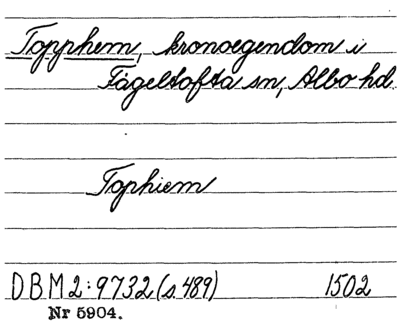 Topphem, kronoegendom i
Fågeltofta sn, Albo hd.
Tophiem
DBM 2:9732 (s. 489) 1502
Nr 5904.